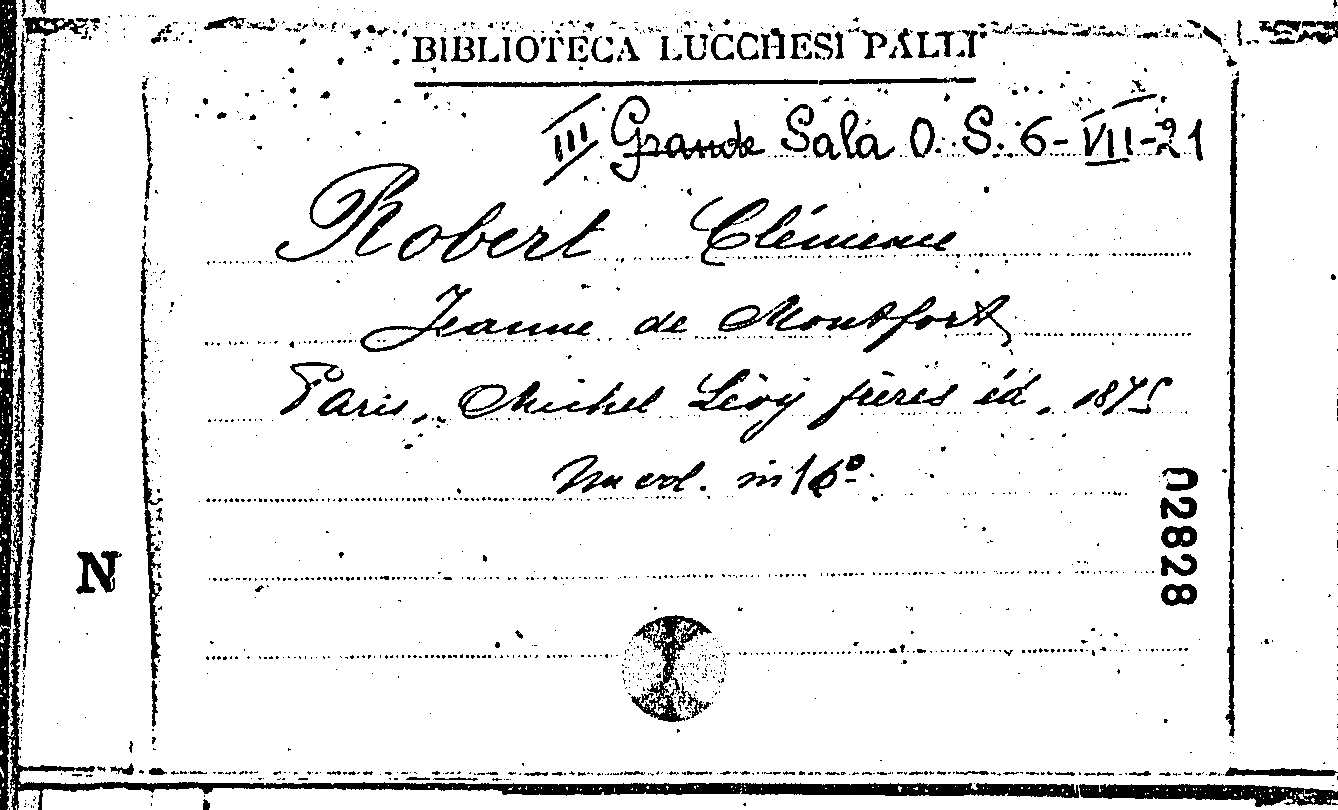 BIBLIOTECA LUCCHESI PALLI
III Grande Sala O. S. 6-VII-21
Robert Clémence
Jeanne de Montfort
Paris, Michel Lévy frères éd, 1875
Un vol. in 16º
02828
N